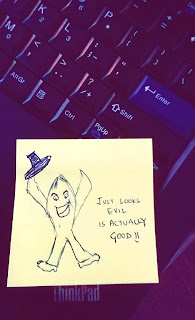 K
L
M
AltGr
Ctrl
Shift
PgUp
Enter
JUST LOOKS
EVIL
IS ACTUALLY
GOOD!!
ThinkPad